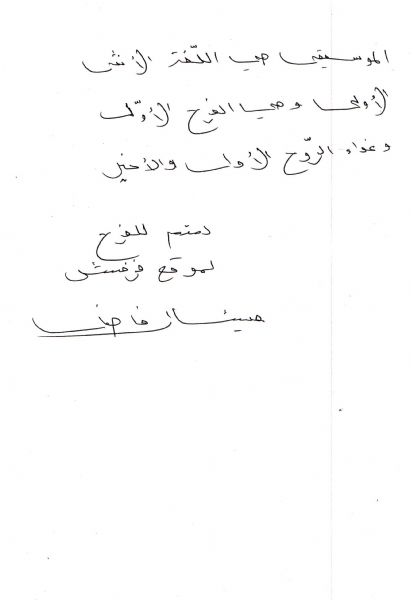 الموسيقى هي اللّغة الأنثى
الأولى وهي الفرح الأوّل
وغذاء الرّوح الأول والأخير
دمتم للفرح
لموقع فرفش
ميشال فاضل